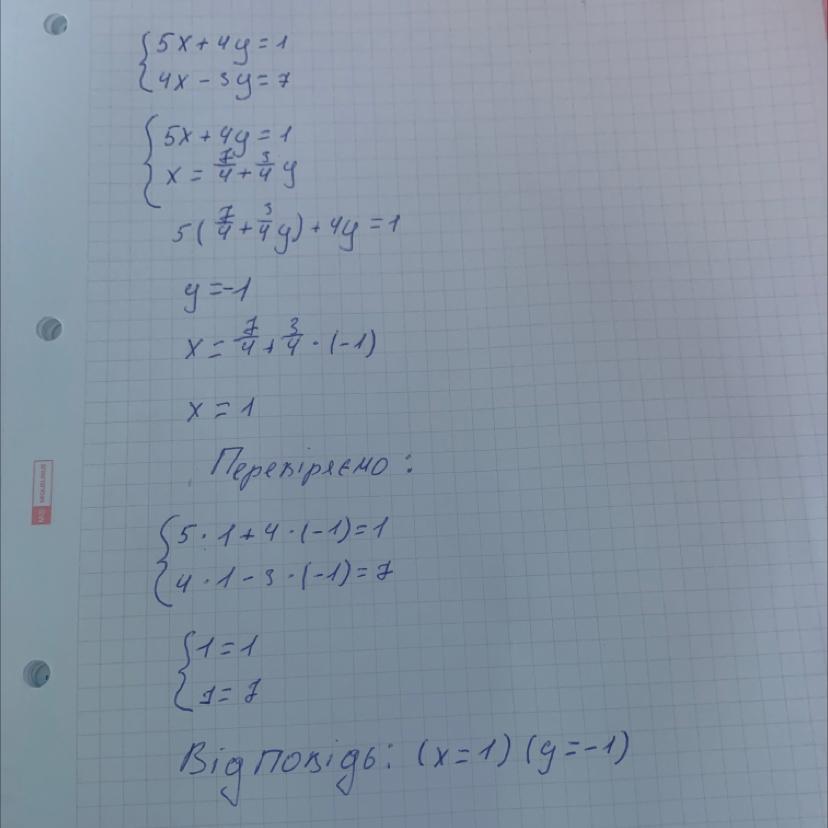 {5x+4y=1
{4x-3y=7
{5x+4y=1
{x=7/4+3/4y
5(7/4+3/4y)+4y=1
y=-1
x=7/4+3/4·(-1)
x=1
Перевіряємо:
{5·1+4·(-1)=1
{4·1-3·(-1)=7
{1=1
{7=7
Відповідь: (x=1) (y=-1)